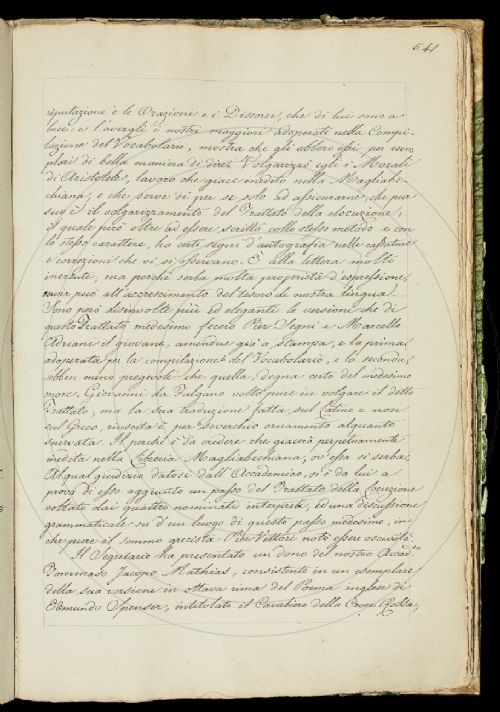 541
riputazione è le Orazioni e i Discorsi, che di lui sono a
luce: e l'avergli i nostri maggiori adoperati nella Compi-
lazione del Vocabolario, mostra che gli ebbero essi per esem-
plari di bella maniera di dire. Volgarizzò egli i Morali
di Aristotele, lavoro che giace inedito nella Magliabe-
chiana, e che serve di per se solo ad assicurarne, che pur
suo è il volgarizzamento del Trattato della elocuzione;
il quale però oltre ad essere scritto collo stesso metodo e con
lo stesso carattere, ha certi segni d'autografia nelle cassature
e correzioni che vi si osservano. È alla lettera molto
inerente, ma perchè serba molta proprietà d'espressione,
può all'accrescimento del tesoro di nostra lingua.
Sono però disinvolte più ed eleganti le versioni che di
questo Trattato medesimo fecero Pier Segni e Marcello
Adriani il giovane, amendue già a stampa, e la prima
adoperata per la compilazione del Vocabolario, e la seconda,
abben meno pregevole che quella, degna certo del medesimo
onore. Giovanni da Falgano voltò pure in volgare il detto
Trattato, ma la sua traduzione fatta sul Latino e non
sul Greco, riuscita è per soverchio ornamento alquanto
snervata. Il perchè è da credere che giacerà perpetuamente
inedita nella Libreria Magliabechiana, ov'essa si serba.
Al qual giudizio datosi dall'Accademico, si è da lui a
prova di esso aggiunto un passo del Trattato della Locuzione
voltato dai quattro nominati interpreti, ed una discussione
grammaticale su d'un luogo di questo passo medesimo, in
che pure il sommo grecista Pier Vettori notò essere oscurità.
Il Segretario ha presentato un dono del nostro Accad.co
Tommaso Jacopo Mathias, consistente in un esemplare
della sua versione in ottava rima del Poema inglese di
Edmundo Spenser, intitolato il Cavaliero della Croce Rossa,